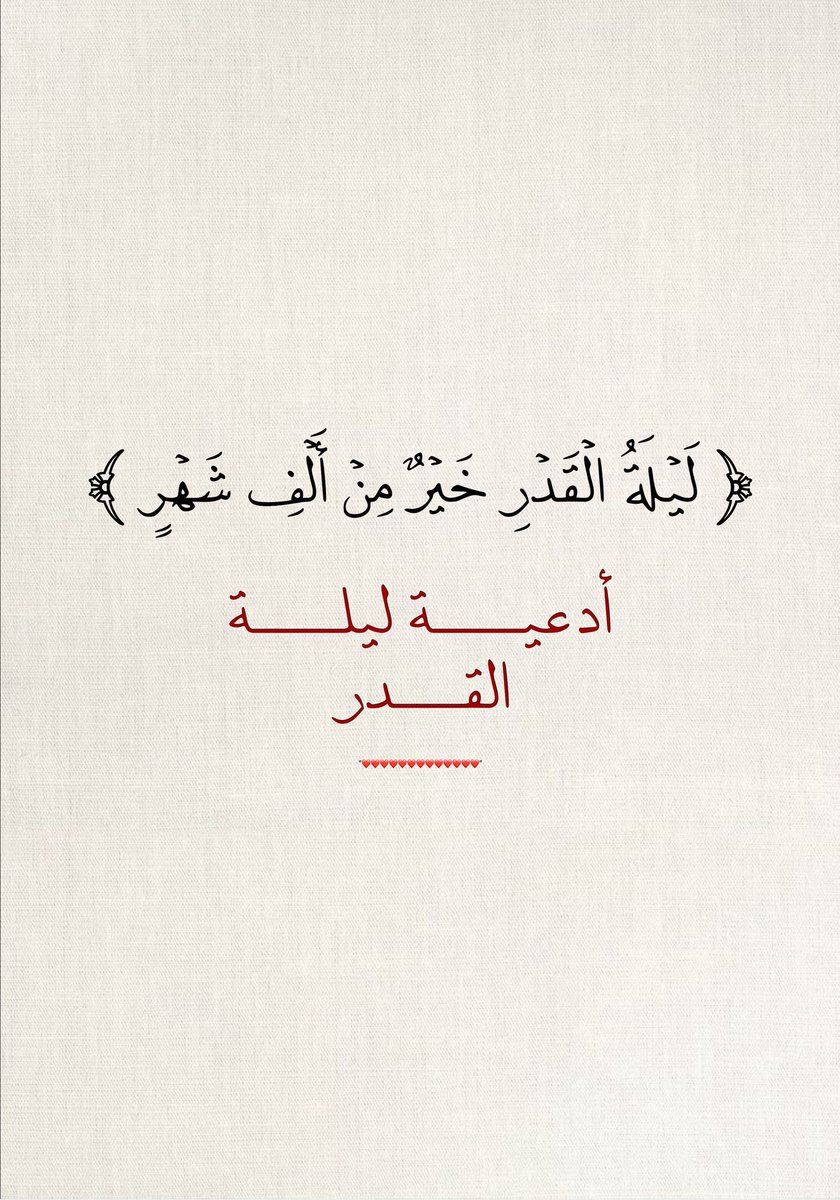 ﴿ لَيْلَةُ الْقَدْرِ خَيْرٌ مِنْ أَلْفِ شَهْرٍ ﴾
أدعيـــــة ليلـــــة
القـــــدر